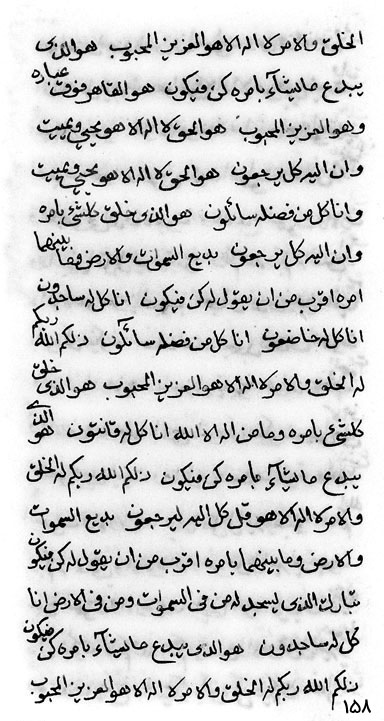 الخلق والامر لا اله الا هو العزيز المحبوب هو الذی
یبدع ما یشآء بامره کن فیکون هو القاهر فوق عباره
وهو العزیز المحبوب هو الحق لا اله الا هو یحیی ویمیت
وان الیه کل یرجعون هو الحق لا اله الا هو یحیی ویمیت
وانا کل من فضله سائلون هو الذی خلق کلشئ بامره
وان الیه کل یرجعون بدیع السموات والارض وما بینهما
امره اقرب من ان یقول له کن فیکون انا کل له ساجدون
انا کل له خاضعون انا کل من فضله سائلون ذلکم الله ربکم
له الخلق والامر لا اله الا هو العزیز المحبوب هو الذی خلق
کلشئ بامره وما من اله الا الله انا کل له قانتون هو الذی
یبدع ما یشآء بامره کن فیکون ذلکم الله ربکم له الخلق
والامر لا اله الا هو قل کل الیه لیرجعون بدیع السموات
والارض وما بینهما بامره اقرب من ان یقول له کن فیکون
تبارک الذی یسجد له من فی السموات ومن فی الارض انا
کل له ساجدون هو الذی یبدع ما یشآء بامره کن فیکون
ذلکم الله ربکم له الخلق والامر لا اله الا هو العزیز المحبوب
۱۵۸